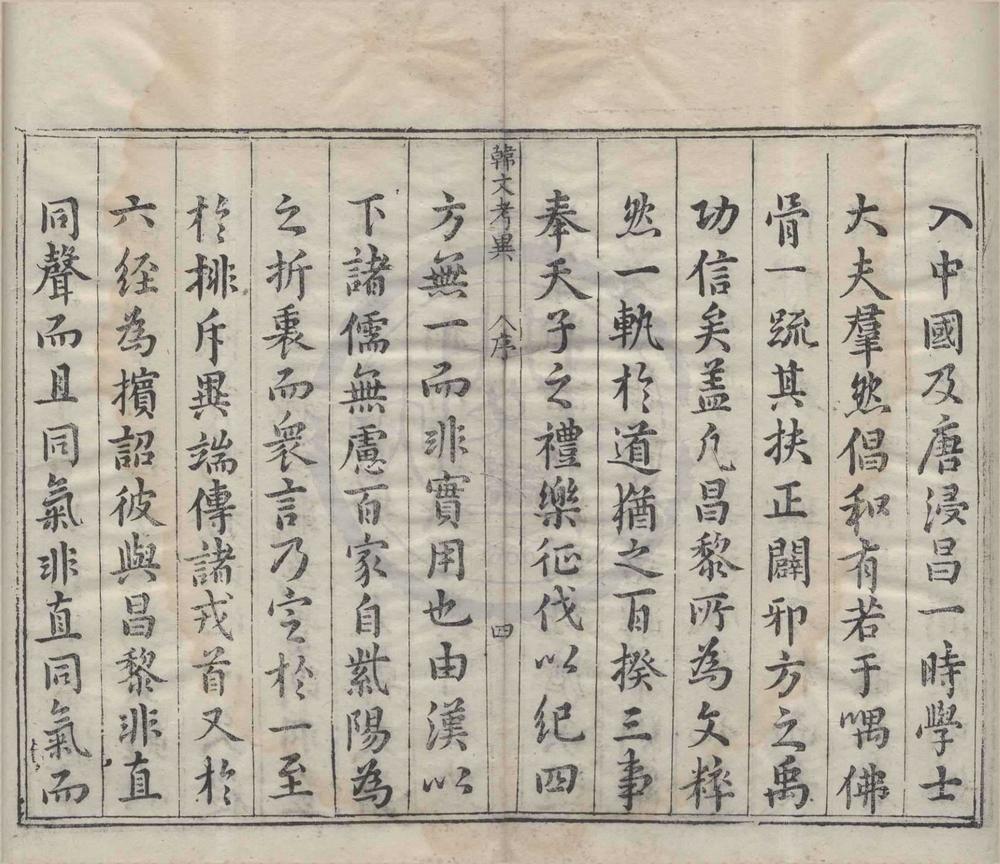 入中國及唐浸昌一時學士
大夫羣然倡和有若于喁佛
骨一䟽其扶正闢邪方之禹
功信矣盖凡昌黎所為文粹
然一軌於道猶之百揆三事
奉天子之禮樂征伐以紀四
韓文考異 序 四
方無一而非實用也由漢以
下諸儒無慮百家自紫陽為
之折衷而衆言乃定於一至
於排斥異端傳諸戎首又於
六経為擯詔彼與昌黎非直
同聲而且同氣非直同氣而